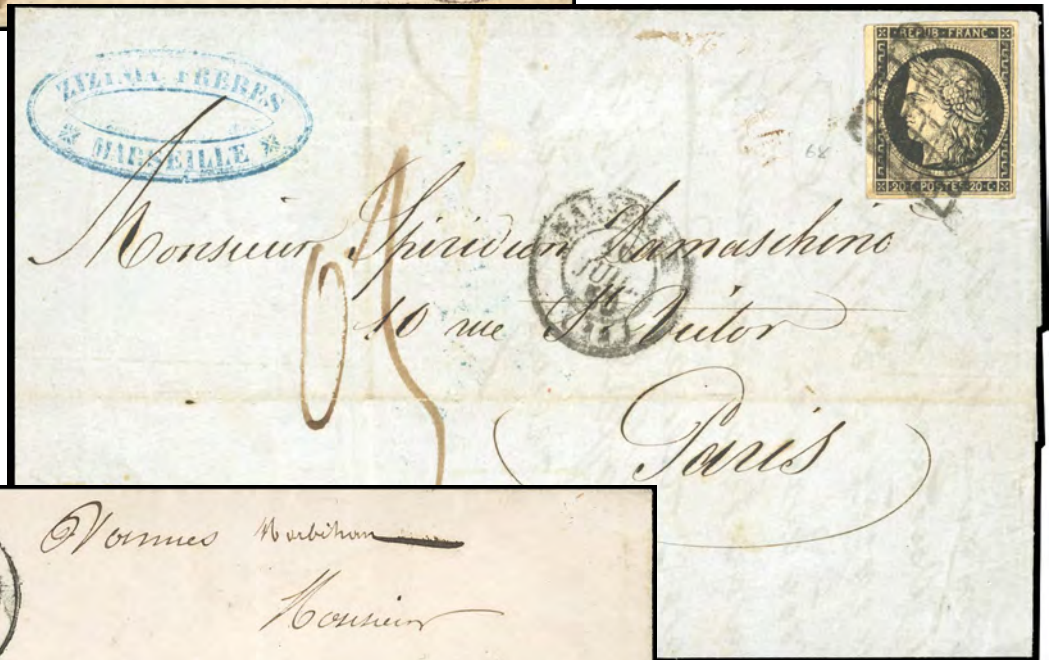 ZIZINIA FRERES
MARSEILLE
REPUB·FRANC·
20·C·POSTES·20·C
68
Monsieur Spiridion Damaschino
JUIL.
50
10 rue St Victor
Paris
Vannes Morbihan
Monsieur